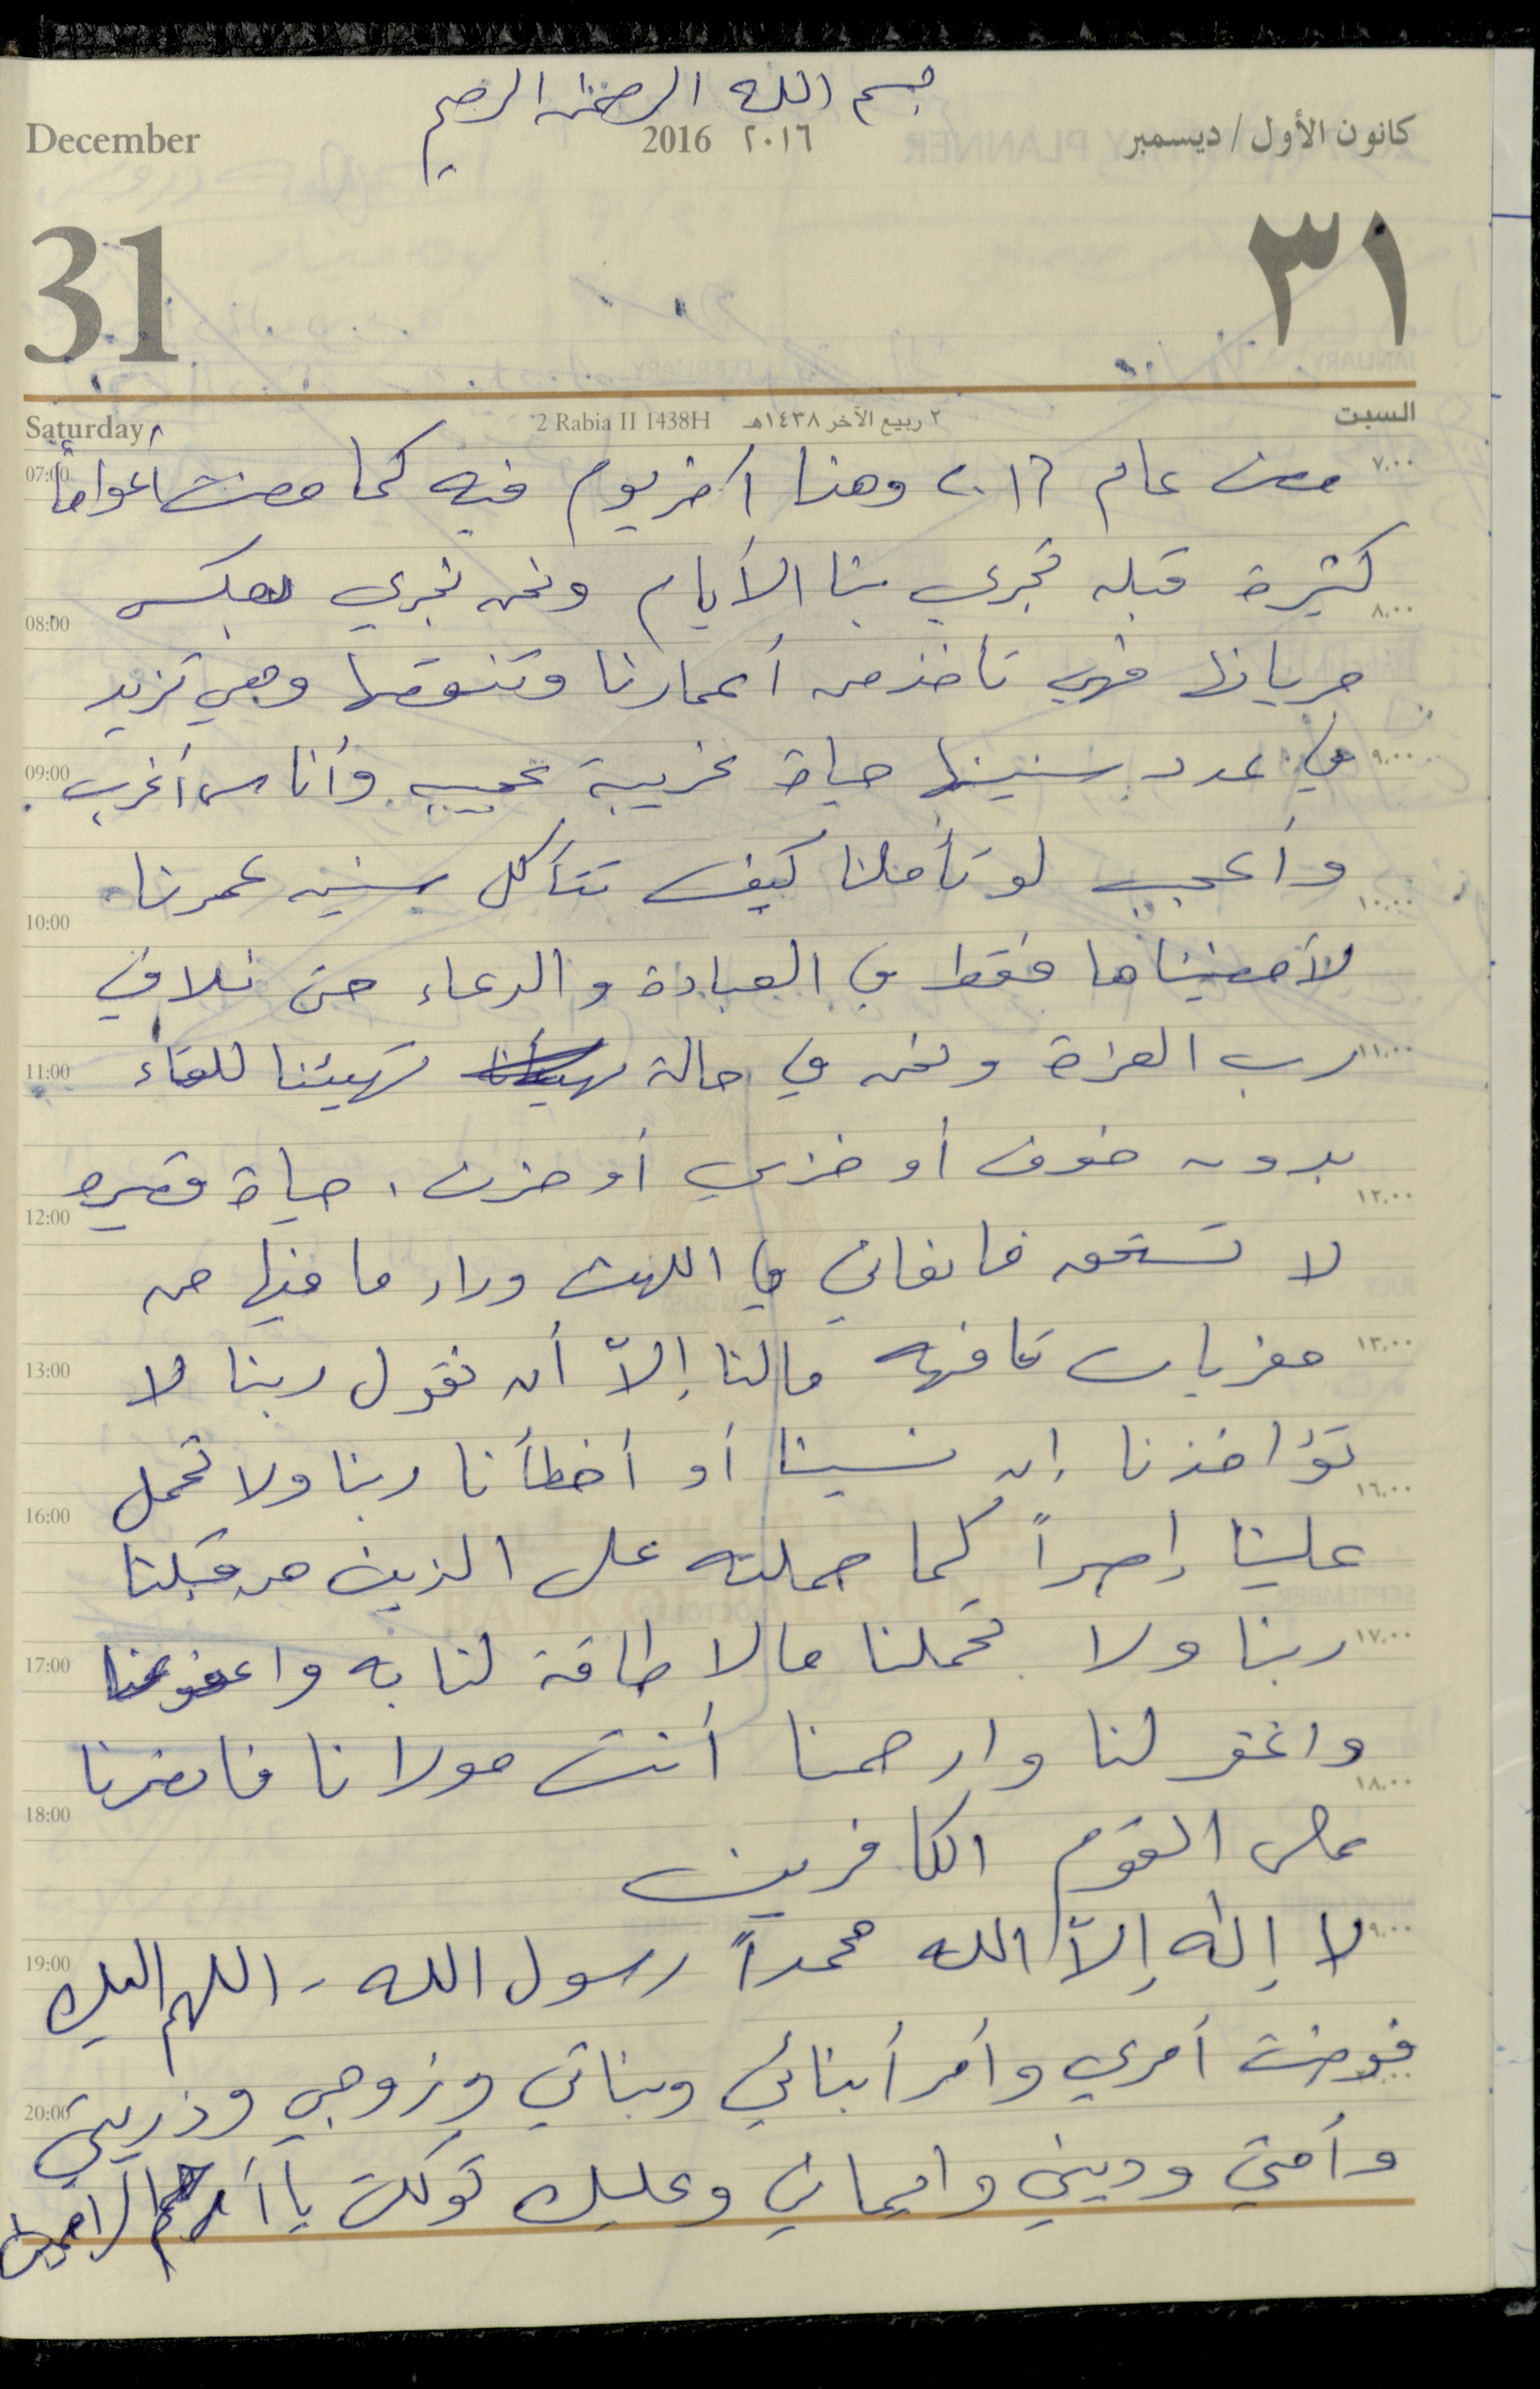 بسم الله الرحمن الرحيم
December 2016 ٢٠١٦ كانون الأول / ديسمبر
31 ٣١
Saturday 2 Rabia II 1438H ٢ ربيع الآخر ١٤٣٨هـ السبت
07:00 مضى عام ٢٠١٦ وهذا آخر يوم فيه كما مضت أعواماً ٧,٠٠
كثيرة قبله تجري بنا الأيام ونحن نجري بعكس
08:00 ٨,٠٠
جريانها فهي تأخذ من أعمارنا وتنقصها وهي تزيد
09:00 في عدد سنينها حياة غريبة عجيبه وأناس أغرب ٩,٠٠
وأعجب لو تأملنا كيف تتآكل سنين عمرنا
10:00 ١٠,٠٠
لأمضيناها فقط في العبادة والدعاء حتى نلاقي
11:00 رب العزة ونحن في حالة تهيئنا للقاء ١١,٠٠
بدون خوف أو خزي أو حزن، حياة قصيره
12:00 ١٢,٠٠
لا تستحق ما نعاني في اللهث وراء ما فيها من
13:00 مغريات تافهه مالنا إلاّ أن نقول ربنا لا ١٣,٠٠
تؤاخذنا إن نسينا أو أخطأنا ربنا ولا تحمل
16:00 ١٦,٠٠
علينا إصراً كما حملته على الذين من قبلنا
17:00 ربنا ولا تحملنا مالا طاقة لنا به واعفو عنا ١٧,٠٠
واغفر لنا وارحمنا أنت مولانا فانصرنا
18:00 ١٨,٠٠
على القوم الكافرين
19:00 لا إله إلاّ الله محمداً رسول الله - اللهم إليك ١٩,٠٠
فوضت أمري وأمر أبنائي وبناتي وزوجي وذريتي
20:00
وأمتي وديني وايماني وعليك توكلت يا أرحم الراحمين
BANK OF PALESTINE